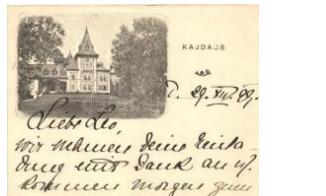 KAJDACS
d. 29. XII. 99.
Liebe Leo,
wir nehmen deine Einla-
dung mit Dank an u.
kommen morgen zum